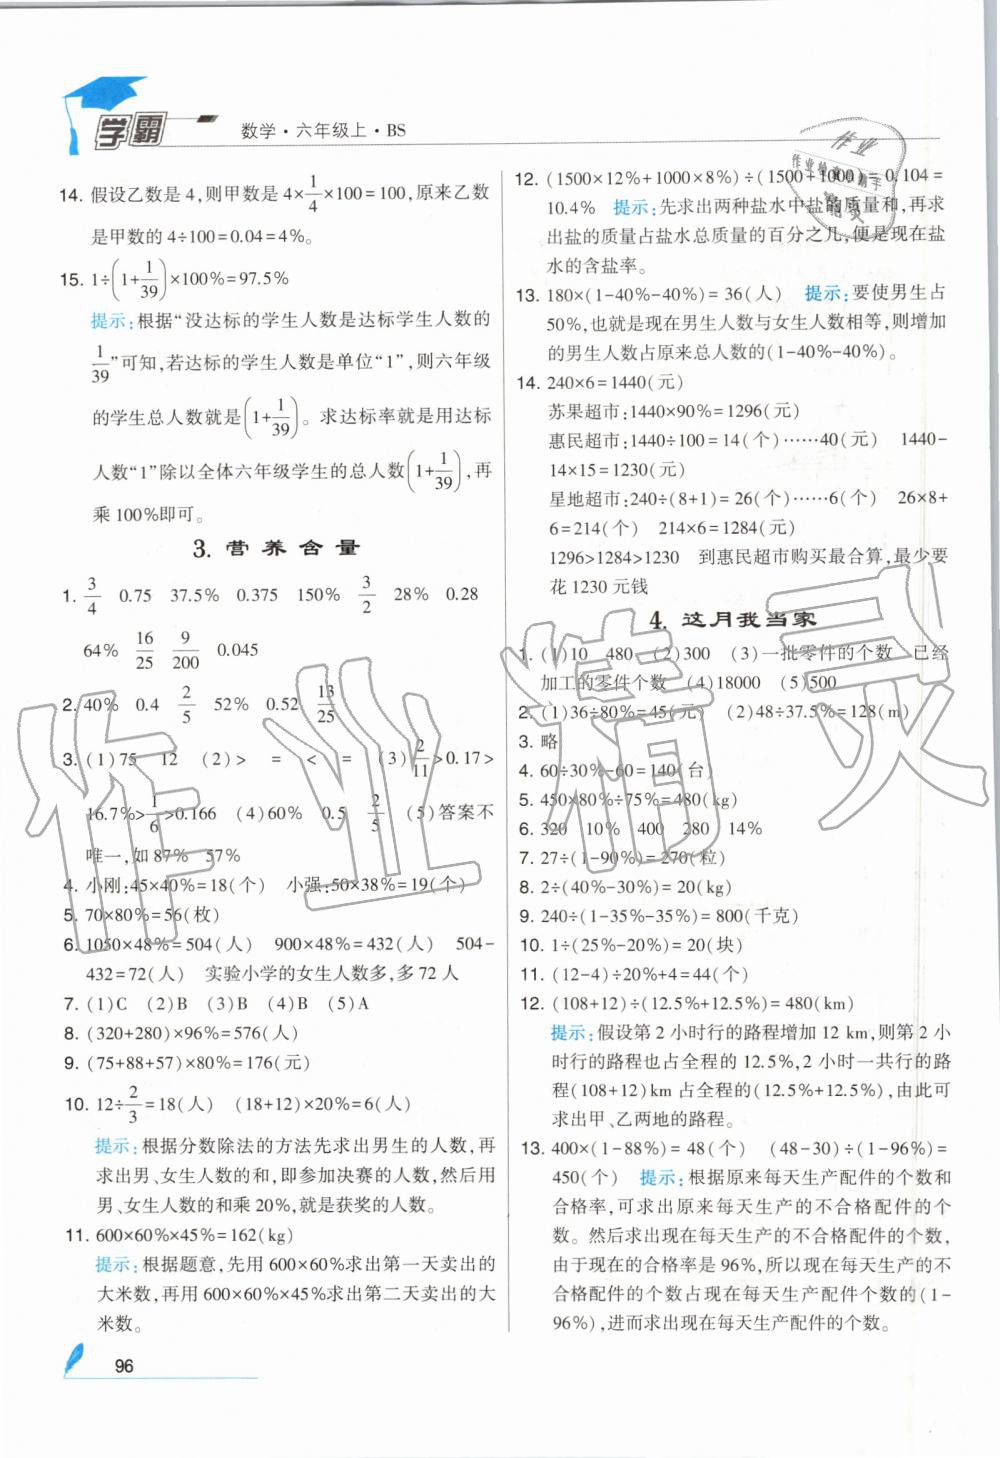 学霸 数学·六年级上·BS
14. 假设乙数是 4,则甲数是 4×1/4×100=100,原来乙数
是甲数的 4÷100=0.04=4%。
15. 1÷(1+1/39)×100%=97.5%
提示:根据“没达标的学生人数是达标学生人数的
1/39”可知,若达标的学生人数是单位“1”,则六年级
的学生总人数就是(1+1/39)。求达标率就是用达标
人数“1”除以全体六年级学生的总人数(1+1/39),再
乘100%即可。
3. 营养含量
1. 3/4 0.75 37.5% 0.375 150% 3/2 28% 0.28
64% 16/25 9/200 0.045
2. 40% 0.4 2/5 52% 0.52 13/25
3. (1)75 12 (2)> = < = (3)2/11>0.17>
16.7%>1/6>0.166 (4)60% 0.5 2/5 (5)答案不
唯一,如 87% 57%
4. 小刚:45×40%=18(个) 小强:50×38%=19(个)
5. 70×80%=56(枚)
6. 1050×48%=504(人) 900×48%=432(人) 504-
432=72(人) 实验小学的女生人数多,多 72 人
7. (1)C (2)B (3)B (4)B (5)A
8. (320+280)×96%=576(人)
9. (75+88+57)×80%=176(元)
10. 12÷2/3=18(人) (18+12)×20%=6(人)
提示:根据分数除法的方法先求出男生的人数,再
求出男、女生人数的和,即参加决赛的人数,然后用
男、女生人数的和乘20%,就是获奖的人数。
11. 600×60%×45%=162(kg)
提示:根据题意,先用 600×60%求出第一天卖出的
大米数,再用 600×60%×45%求出第二天卖出的大
米数。
96
12. (1500×12%+1000×8%)÷(1500+1000)=0.104=
10.4% 提示:先求出两种盐水中盐的质量和,再求
出盐的质量占盐水总质量的百分之几,便是现在盐
水的含盐率。
13. 180×(1-40%-40%)=36(人) 提示:要使男生占
50%,也就是现在男生人数与女生人数相等,则增加
的男生人数占原来总人数的(1-40%-40%)。
14. 240×6=1440(元)
苏果超市:1440×90%=1296(元)
惠民超市:1440÷100=14(个)……40(元) 1440-
14×15=1230(元)
星地超市:240÷(8+1)=26(个)……6(个) 26×8+
6=214(个) 214×6=1284(元)
1296>1284>1230 到惠民超市购买最合算,最少要
花 1230 元钱
4. 这月我当家
1. (1)10 480 (2)300 (3)一批零件的个数 已经
加工的零件个数 (4)18000 (5)500
2. (1)36÷80%=45(元) (2)48÷37.5%=128(m)
3. 略
4. 60÷30%-60=140(台)
5. 450×80%÷75%=480(kg)
6. 320 10% 400 280 14%
7. 27÷(1-90%)=270(粒)
8. 2÷(40%-30%)=20(kg)
9. 240÷(1-35%-35%)=800(千克)
10. 1÷(25%-20%)=20(块)
11. (12-4)÷20%+4=44(个)
12. (108+12)÷(12.5%+12.5%)=480(km)
提示:假设第 2 小时行的路程增加 12 km,则第 2 小
时行的路程也占全程的 12.5%,2 小时一共行的路
程(108+12)km 占全程的(12.5%+12.5%),由此可
求出甲、乙两地的路程。
13. 400×(1-88%)=48(个) (48-30)÷(1-96%)=
450(个) 提示:根据原来每天生产配件的个数和
合格率,可求出原来每天生产的不合格配件的个
数。然后求出现在每天生产的不合格配件的个数,
由于现在的合格率是 96%,所以现在每天生产的不
合格配件的个数占现在每天生产配件个数的(1-
96%),进而求出现在每天生产配件的个数。
作业精灵